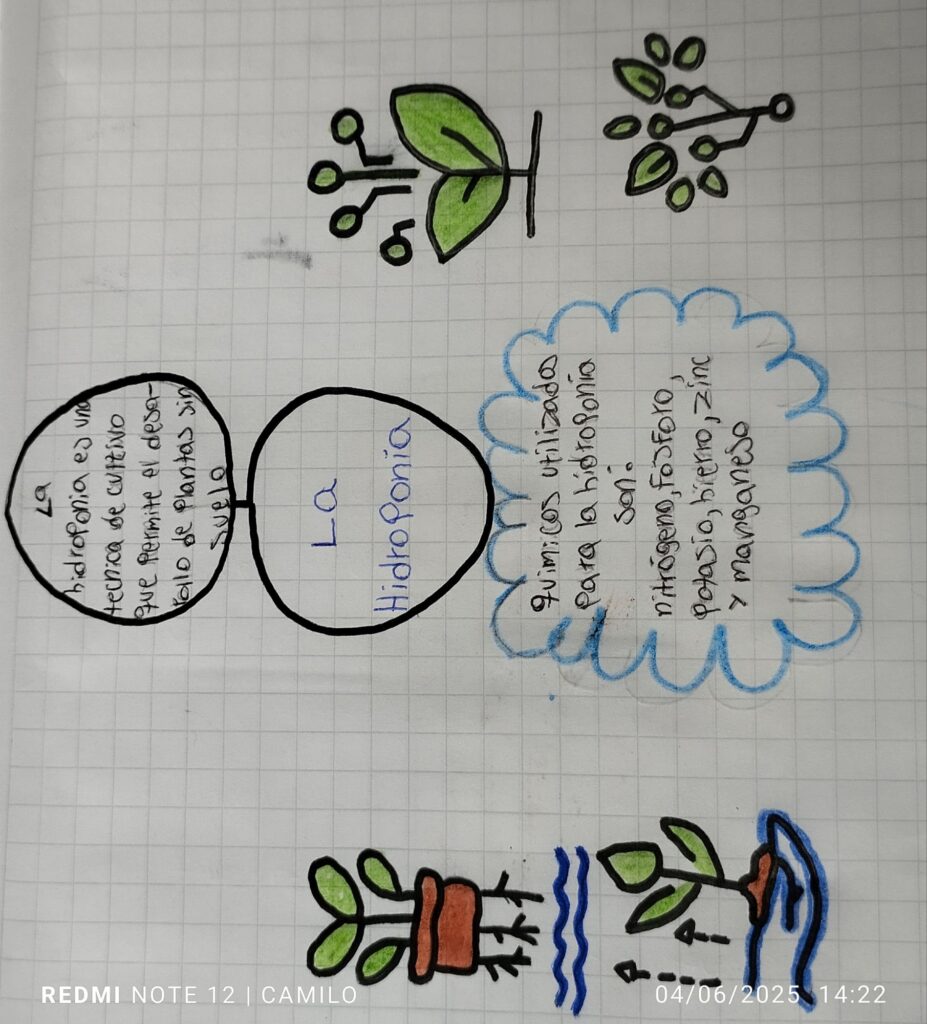 La
hidroponia es una
tecnica de cultivo
que permite el desa-
rollo de plantas sin
suelo
La
Hidroponía
químicos utilizados
para la hidroponía
son:
nitrógeno, fósforo,
potasio, hierro, zinc
y manganeso
REDMI NOTE 12 | CAMILO
04/06/2025 14:22